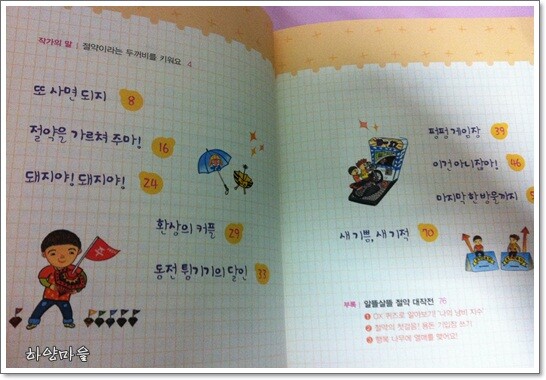 작가의 말 | 절약이라는 두꺼비를 키워요 4
또 사면 되지 8
절약을 가르쳐 주마! 16
돼지야! 돼지야! 24
환상의 커플 29
동전 튕기기의 달인 33
펑펑 게임장 39
이건 아니잖아! 46
마지막 한 방울까지
새 기쁨, 새 기적 70
부록 | 알뜰살뜰 절약 대작전 76
① OX 퀴즈로 알아보기! '나의 낭비 지수'
② 절약의 첫걸음! 용돈 기입장 쓰기
③ 행복 나무에 열매를 맺어요!
하얀마을